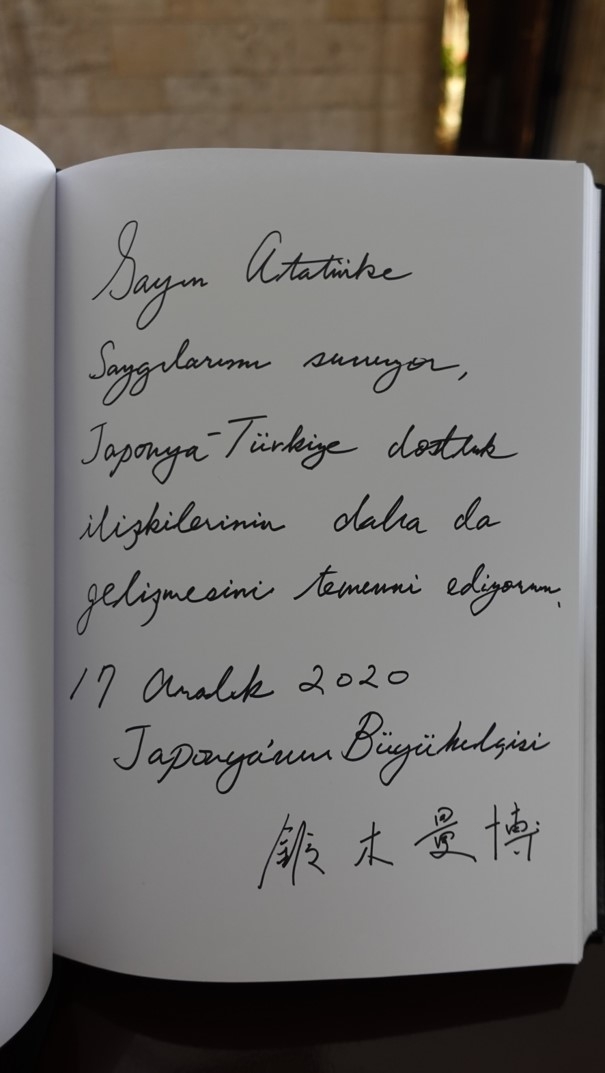 Sayın Atatürke
Saygılarımı sunuyor,
Japonya-Türkiye dostluk
ilişkilerinin daha da
gelişmesini temenni ediyorum.
17 Aralık 2020
Japonya'nın Büyükelçisi
鈴木量博